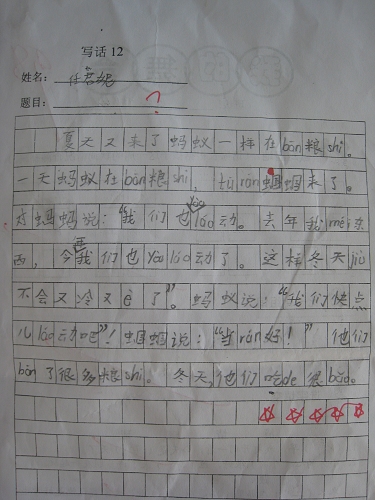 写话 12
姓名：
题目： ?
夏天又来了蚂蚁一样在bān粮shi。
一天蚂蚁在bān粮shi，tū rán蝈蝈来了。
对蝈蝈说：“我们也yàoláo动。去年我méi东
西，今我们也yào láo动了。这样冬天jiù
不会又冷又è了”。蚂蚁说：“我们快点
儿láo动吧”！蝈蝈说：“当rán好！”他们
bān了很多粮shi。冬天，他们吃de很bǎo。